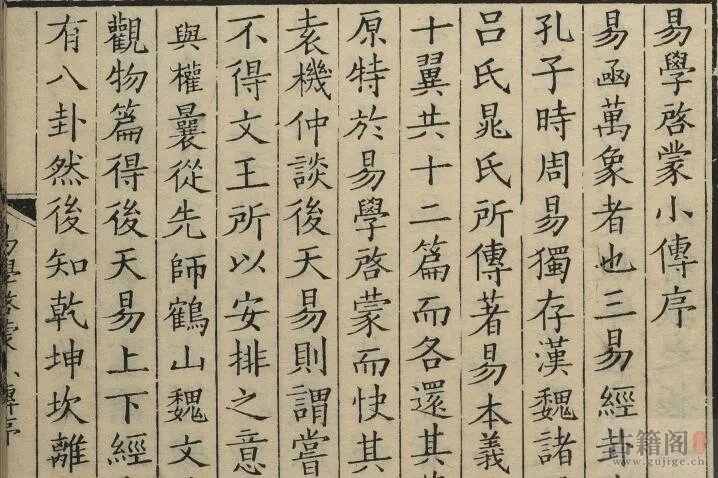 易學啓蒙小傳序
易函萬象者也三易經卦
孔子時周易獨存漢魏諸
呂氏晁氏所傳著易本義
十翼共十二篇而各還其
原特於易學啓蒙而快其
袁機仲談後天易則謂嘗
不得文王所以安排之意
與權曩從先師鶴山魏文
觀物篇得後天易上下經
有八卦然後知乾坤坎離
易學啓蒙小傳序
古籍阁
www.gujige.cn